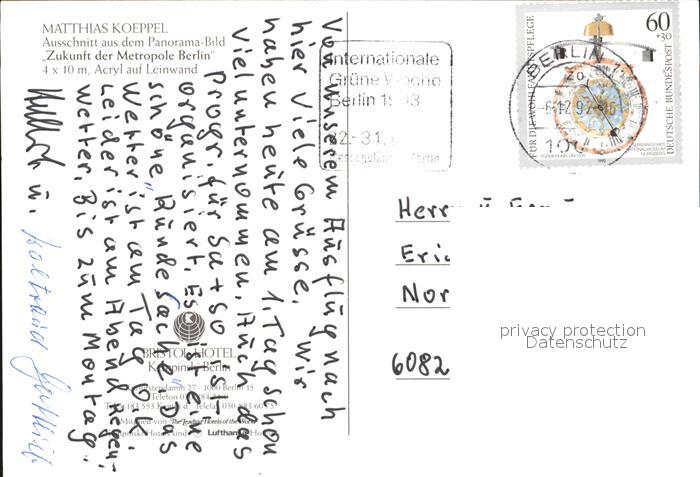 MATTHIAS KOEPPEL
Ausschnitt aus dem Panorama-Bild
„Zukunft der Metropole Berlin"
4 x 10 m, Acryl auf Leinwand
Von unserem Ausflug nach
hier viele Grüsse. Wir
haben heute am 1. Tag schon
viel unternommen. Auch das
Progr. für Sa + So ist
organisiert. Es ist eine
schöne „Runde Sache". Das
Wetter ist am Tag o.k.
Leider ist am Abend Regen-
wetter. Bis zum Montag.
u.
BRISTOL HOTEL
Kempinski Berlin
27 - 1000 Berlin 15
Telefon
Mitglied von "The Leading Hotels of the World"
Lufthansa
Internationale
Grüne Woche
Berlin 1993
FÜR DIE WOHLFAHRTSPFLEGE
60
+30
DEUTSCHE BUNDESPOST
BERLIN
Herr
Nor
6082
privacy protection
Datenschutz